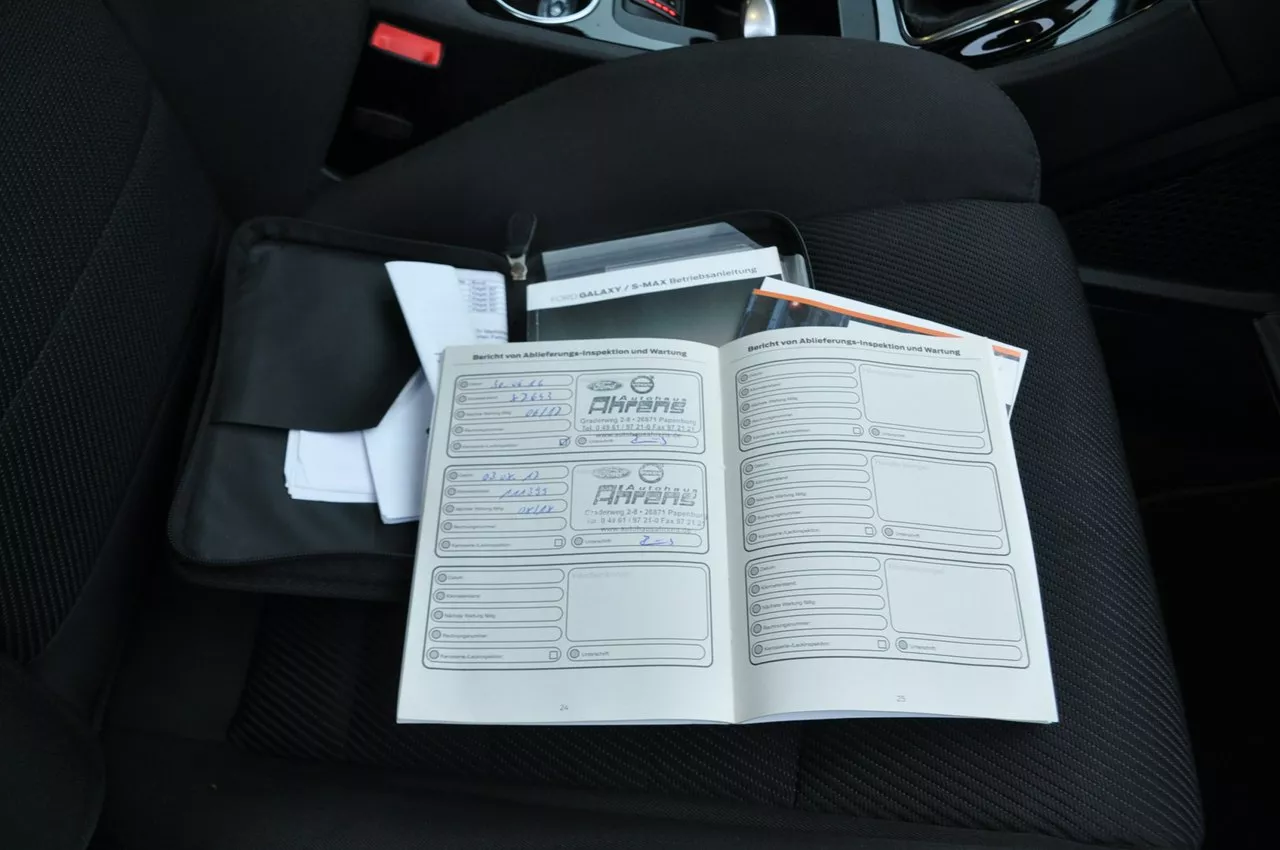 FORD GALAXY / S-MAX Betriebsanleitung
Bericht von Ablieferungs-Inspektion und Wartung
Datum
Kilometerstand
Nächste Wartung fällig 06/17
Rechnungsnummer
Karosserie-/Lackinspektion
Ford VOLVO
Autohaus
Ahrens
Graderweg 2-8 • 26871 Papenburg
Tel. 0 49 61 / 97 21-0 Fax 97 21 21
www.autohausahrens.de
Unterschrift
Datum
Kilometerstand 111399
Nächste Wartung fällig 08/18
Rechnungsnummer
Karosserie-/Lackinspektion
Ford
Autohaus
Ahrens
Graderweg 2-8 • 26871 Papenburg
Tel. 0 49 61 / 97 21-0 Fax 97 21 21
www.autohausahrens.de
Unterschrift
Datum
Kilometerstand
Nächste Wartung fällig
Rechnungsnummer
Karosserie-/Lackinspektion
Unterschrift
24
Bericht von Ablieferungs-Inspektion und Wartung
Datum
Kilometerstand
Nächste Wartung fällig
Rechnungsnummer
Karosserie-/Lackinspektion
Unterschrift
Datum
Kilometerstand
Nächste Wartung fällig
Rechnungsnummer
Karosserie-/Lackinspektion
Unterschrift
Datum
Kilometerstand
Nächste Wartung fällig
Rechnungsnummer
Karosserie-/Lackinspektion
Unterschrift
25